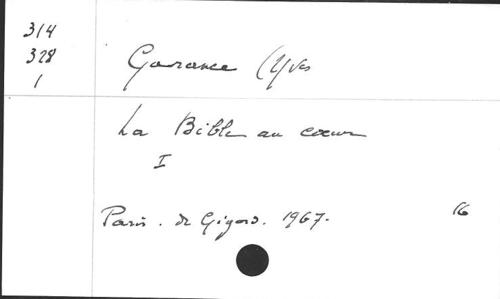 314
328
1
Garance (Yves
La Bible au cœur
I
Paris. de Gigord. 1967.
16